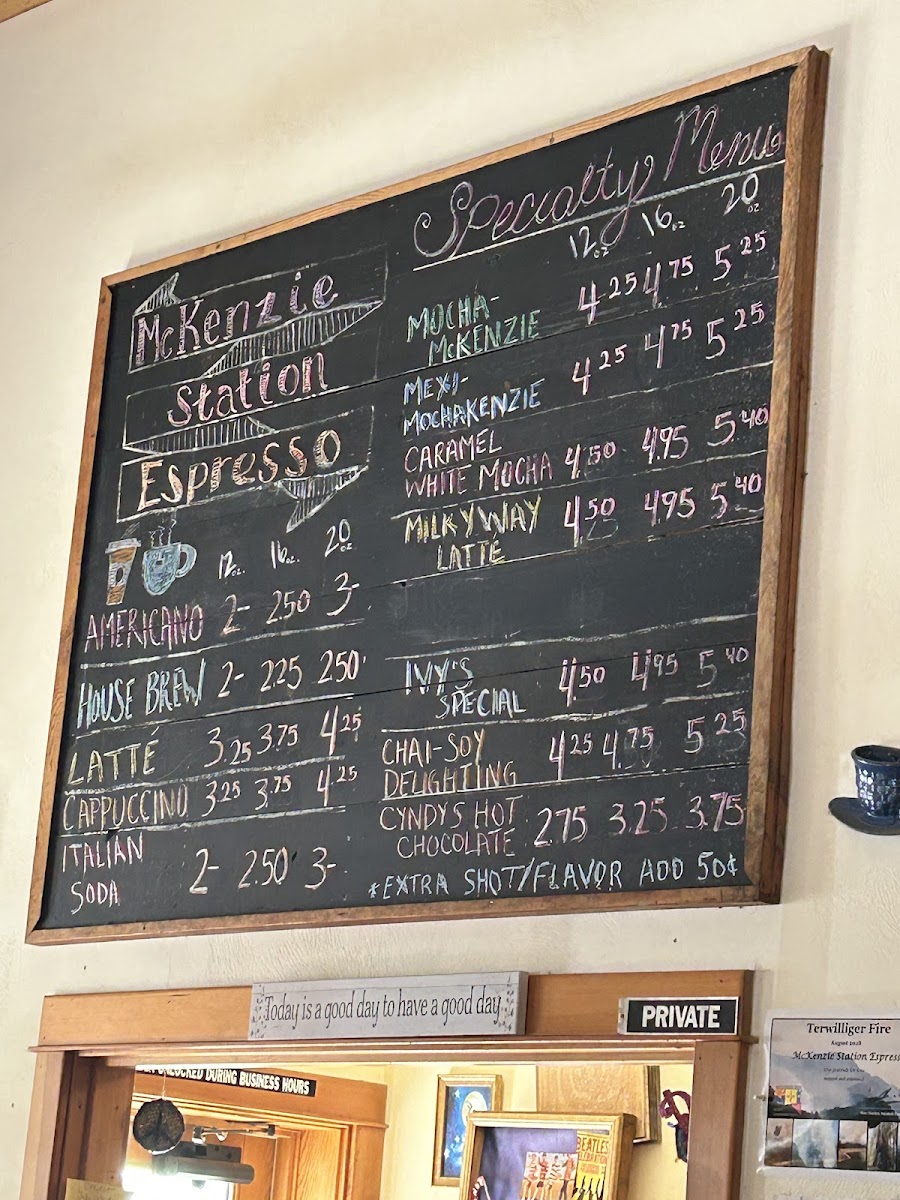 McKenzie
Station
Espresso
12 oz. 16 oz. 20 oz
AMERICANO 2- 250 3-
HOUSE BREW 2- 225 250
LATTÉ 3.25 3.75 4.25
CAPPUCCINO 3.25 3.75 4.25
ITALIAN
SODA 2- 2.50 3-
Specialty Menu
12 oz 16 oz 20 oz
MOCHA-
MCKENZIE 4.25 4.75 5.25
MEXI-
MOCHAKENZIE 4.25 4.75 5.25
CARAMEL
WHITE MOCHA 4.50 4.95 5.40
MILKYWAY
LATTE 4.50 4.95 5.40
IVY'S
SPECIAL 4.50 4.95 5.40
CHAI-SOY
DELIGHTING 4.25 4.75 5.25
CYNDYS HOT
CHOCOLATE 2.75 3.25 3.75
*EXTRA SHOT/FLAVOR ADD 50¢
Today is a good day to have a good day.
PRIVATE
UNLOCKED DURING BUSINESS HOURS
BEATLES
Terwilliger Fire
McKenzie Station Espresso